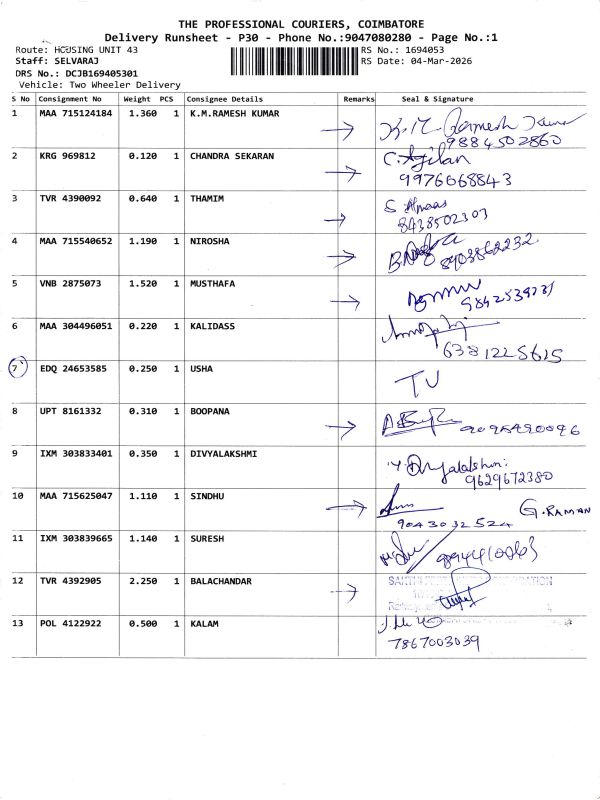 THE PROFESSIONAL COURIERS, COIMBATORE
Delivery Runsheet - P30 - Phone No.:9047080280 - Page No.:1
Route: HOUSING UNIT 43
RS No.: 1694053
Staff: SELVARAJ
RS Date: 04-Mar-2026
DRS No.: DCJB169405301
Vehicle: Two Wheeler Delivery
S No Consignment No Weight PCS Consignee Details Remarks Seal & Signature
1 MAA 715124184 1.360 1 K.M.RAMESH KUMAR → K.M. Ramesh Kumar
9884502860
2 KRG 969812 0.120 1 CHANDRA SEKARAN → C. Agilan
9976068843
3 TVR 4390092 0.640 1 THAMIM → S
8438502303
4 MAA 715540652 1.190 1 NIROSHA →
8903862232
5 VNB 2875073 1.520 1 MUSTHAFA →
6 MAA 304496051 0.220 1 KALIDASS
6381225615
7 EDQ 24653585 0.250 1 USHA TU
8 UPT 8161332 0.310 1 BOOPANA →
9 IXM 303833401 0.350 1 DIVYALAKSHMI Y. Divyalakshmi
9629672380
10 MAA 715625047 1.110 1 SINDHU → G.RAMAN
9043032524
11 IXM 303839665 1.140 1 SURESH
12 TVR 4392905 2.250 1 BALACHANDAR →
13 POL 4122922 0.500 1 KALAM
7867003039